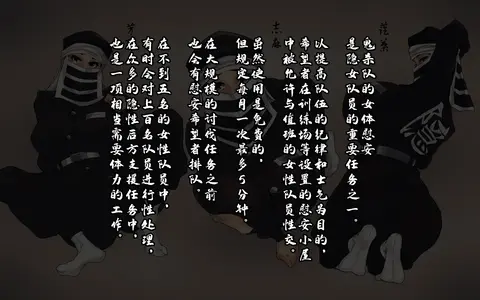 鬼杀队的女体慰安
是隐女队员的重要任务之一。
以提高队伍的纪律和士气为目的，
希望者在训练场等设置的慰安小屋
中被允许与值班的女性队员性交。
虽然使用是免费的，
但规定每月一次最多5分钟
在大规模的讨伐任务之前
也会有慰安希望者排队。
在不到五名的女性队员中，
有时会对上百名队员进行性处理，
在众多的隐性后方支援任务中，
也是一项相当需要体力的工作。